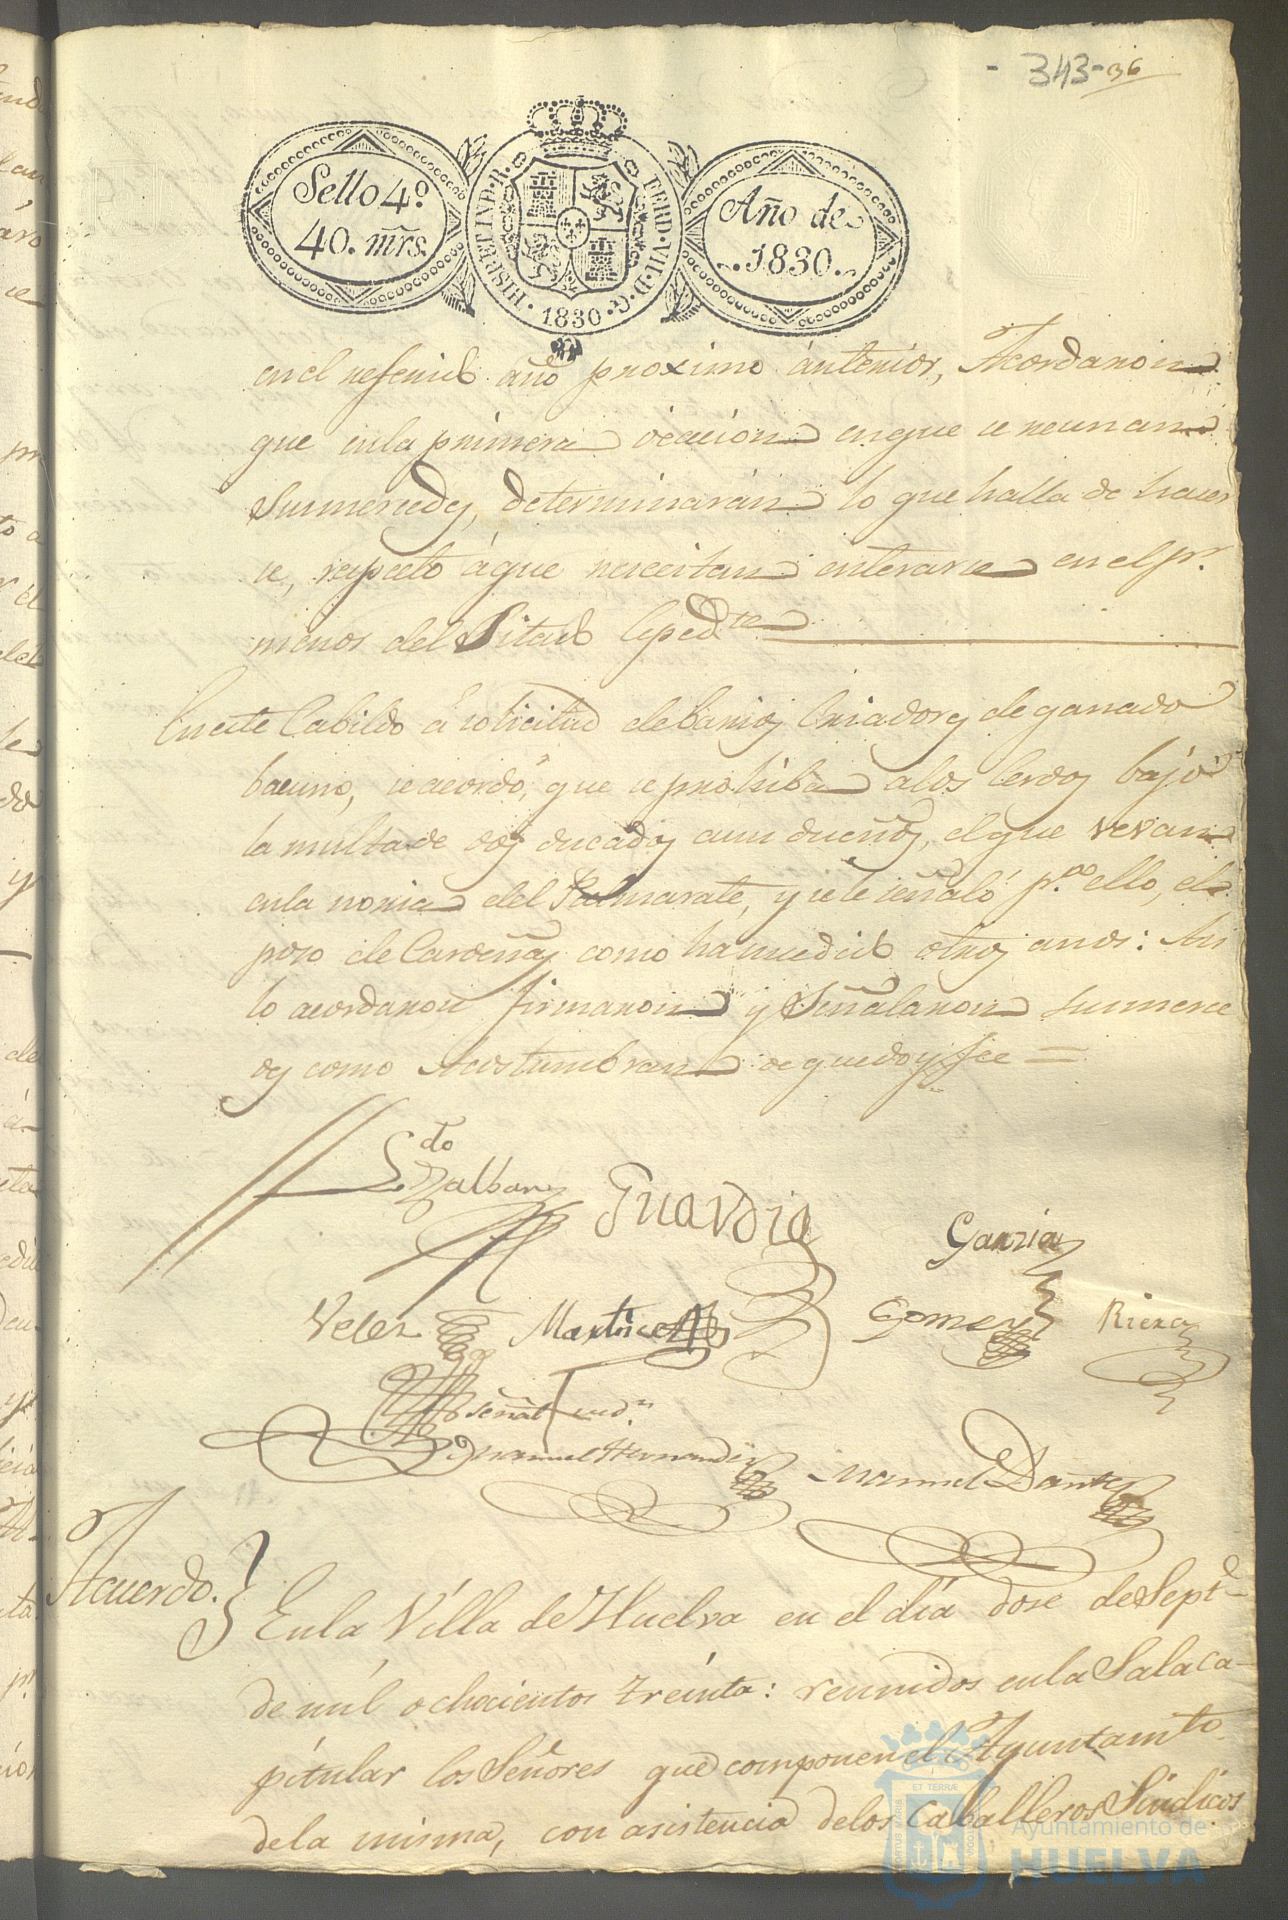 - 343 - 36
Sello 4º
40. mrs.
HISPET IND. R. FERD. VII. D. G.
1830
Año de
1830.
en el referido año proximo ánterior, Acordaron
que enla primera ocacion enque ce reunan
Sus mercedes, determinarán lo que halla de hacer
ce, respecto áque necesitan enterarce en el pr.
menos del Sitado Esped.te
En este Cabildo á solicitud de barios Criadores de ganado
bacuno, ce acordó, que ce prohiba alos Cerdos bajo
la multa de dos ducados asus dueños, el que vevan
enla noria del Palmarate, y ce le señaló p.ª ello, el
poso de Cardeñas como ha sucedido otros anos: Asi
lo acordaron firmaron y Señalaron sus merce
des como Acostumbran de que doy fee =
L.do
Balbany
Guardia
Garzia
Velez
Martinez
Gomez
Riera
señal
Manuel Hernandez
Manuel Dante
Acuerdo.
Enla Villa de Huelva en el día dose de Sept.e
de mil ochocientos treinta: reunidos enla Sala ca-
pitular los Señores que componen el Ayuntam.to
dela misma, con asistencia delos Caballeros Sindicos
ET TERRÆ
PORTUS MARIS
CUSTODIA
Ayuntamiento de
HUELVA